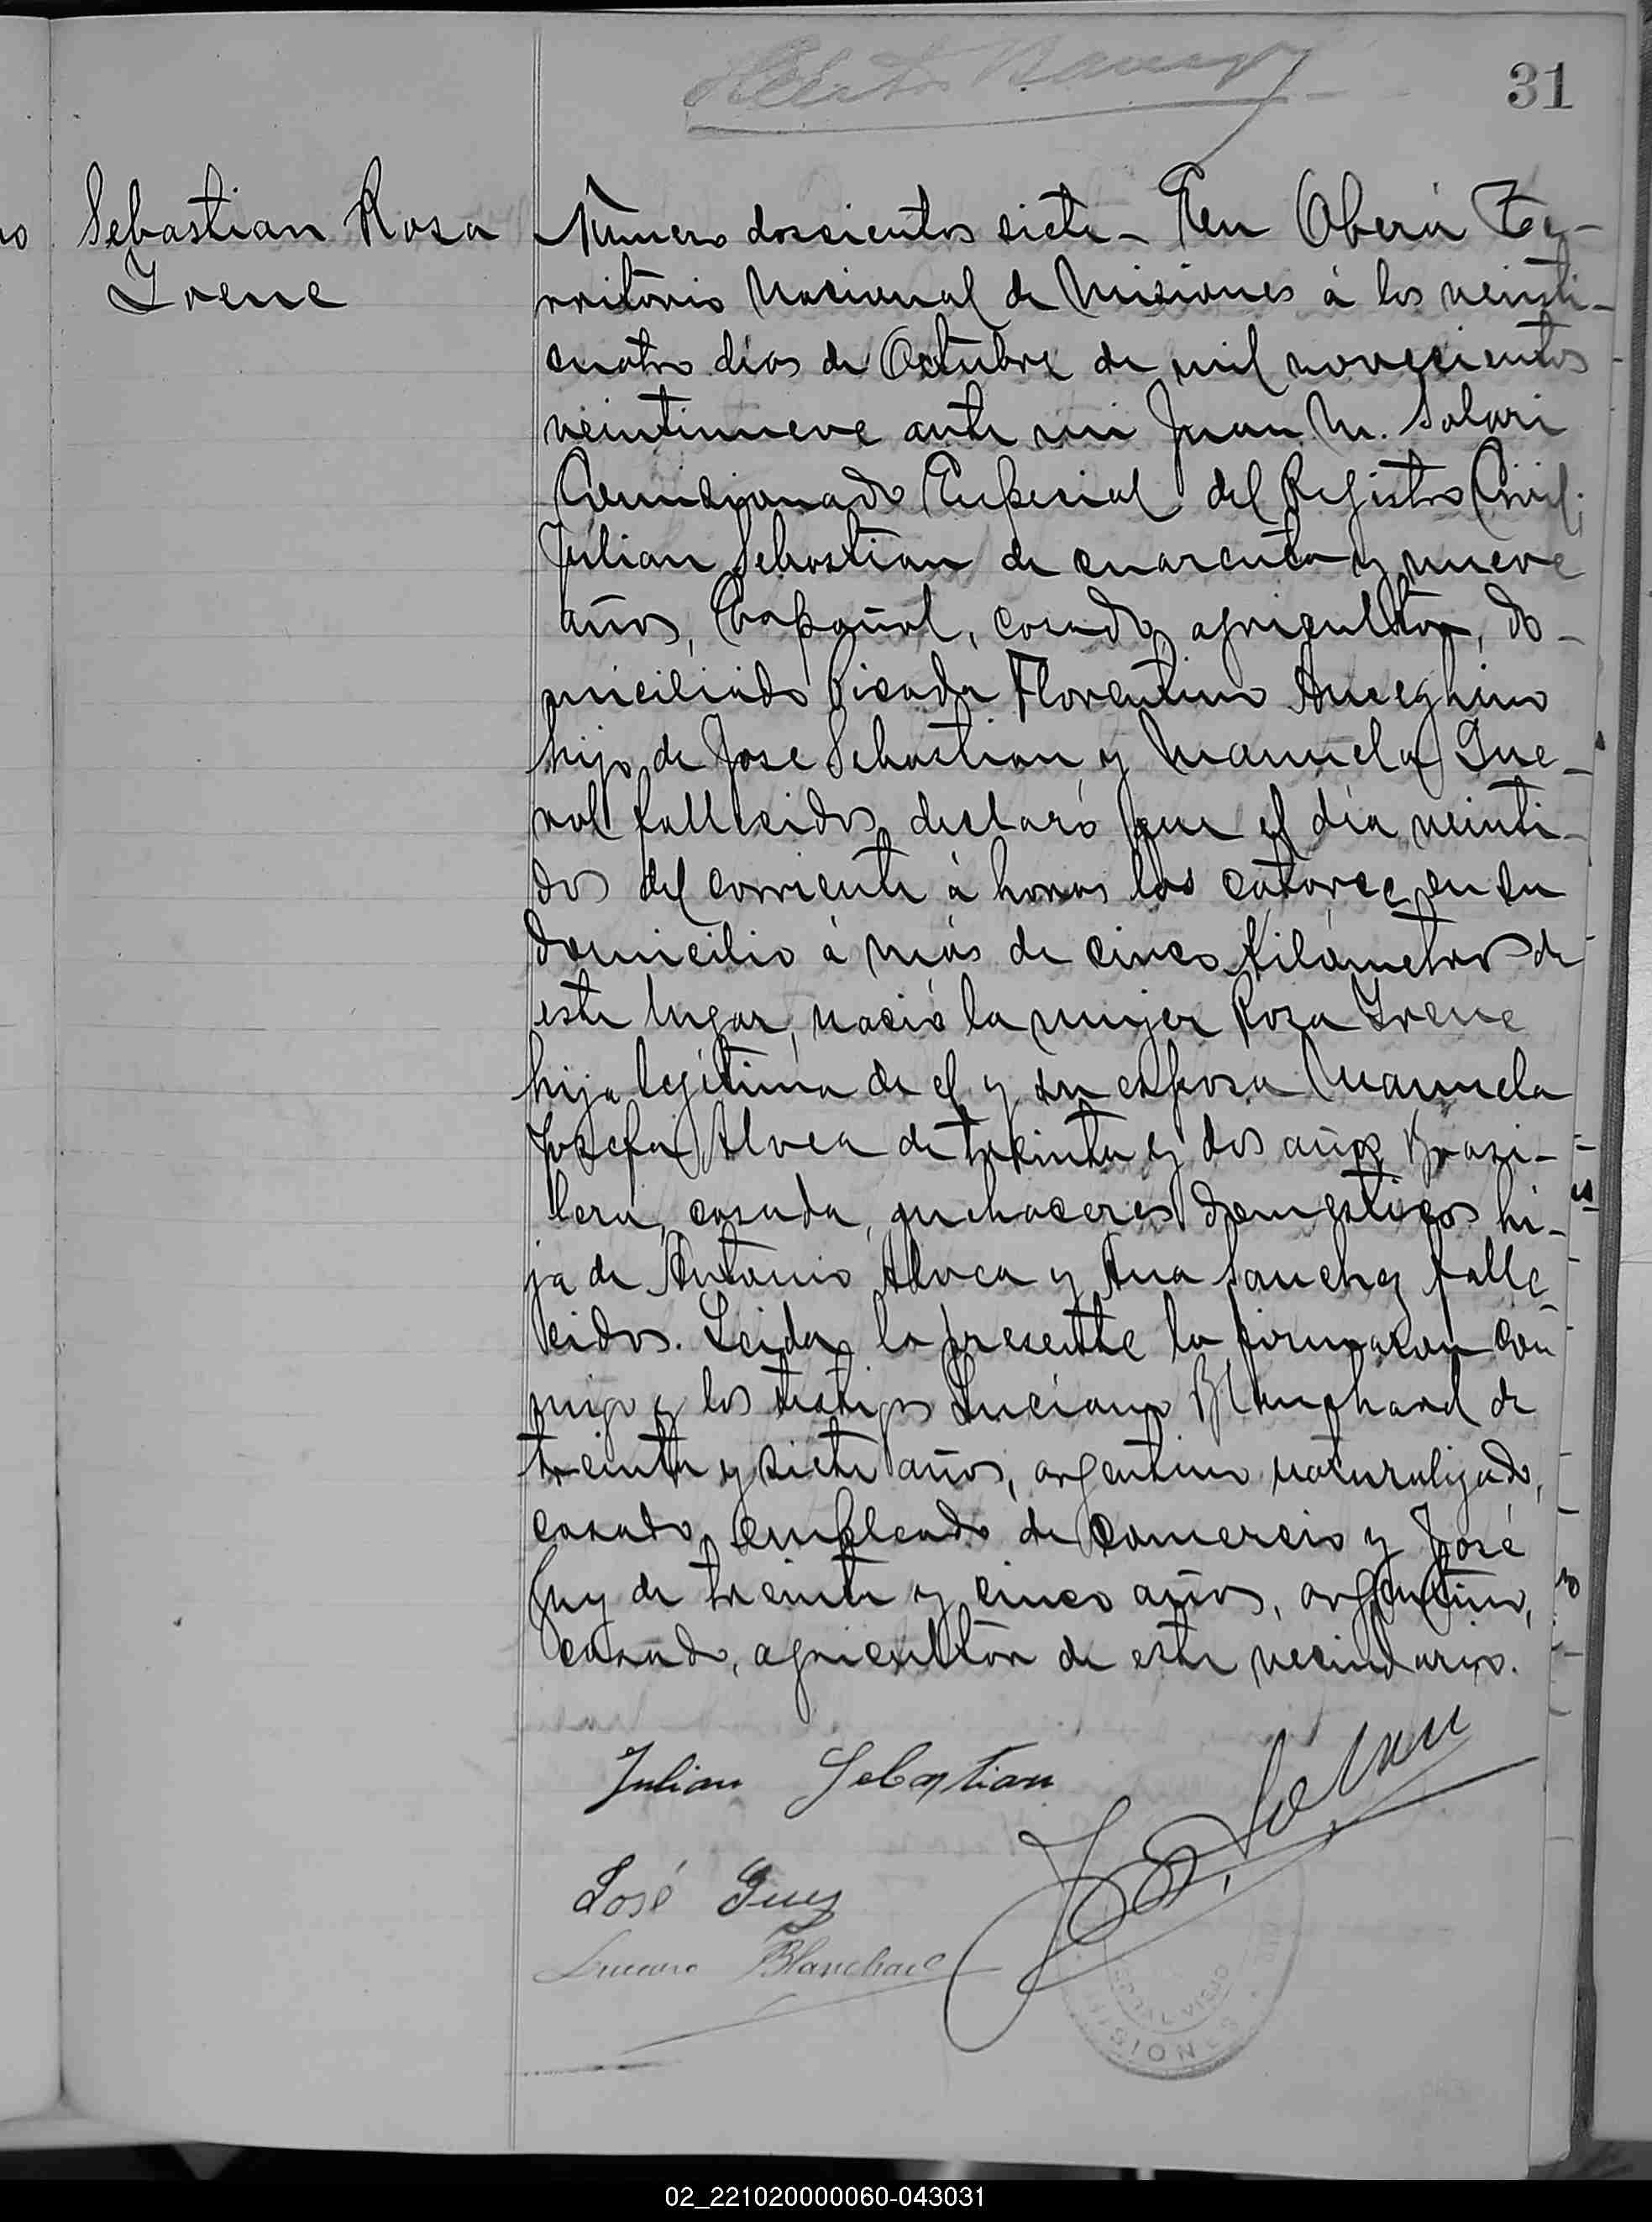 31
Sebastian Rosa
Irene
Número doscientos siete – En Oberá Te-
rritorio Nacional de Misiones á los veinti-
cuatro días de Octubre de mil novecientos
veintinueve ante mi Juan M. Solari
Comisionado Especial del Registro Civil;
Julian Sebastian de cuarenta y nueve
años, Español, casado, agricultor, do-
miciliado Picada Florentino Ameghino
hijo de Jose Sebastian y Manuela
fallecidos, declaró que el día veinti-
dos del corriente á horas las catorce, en su
domicilio á más de cinco kilómetros de
este lugar, nació la mujer Rosa Irene
hija legitima de el y su esposa Manuela
Josefa Alvea de treinta y dos años Brasi-
lera, casada, quehaceres domesticos hi-
ja de Antonio Alvea y Ana Sanchez falle-
cidos. Leida la presente la firmaron con
migo y los testigos Luciano Blanchard de
treinta y siete años, argentino naturalizado,
casado, empleado de comercio y José
de treinta y cinco años, argentino,
casado, agricultor de este vecindario.
Julian Sebastian
José
Luciano Blanchard
MISIONES
02_221020000060-043031